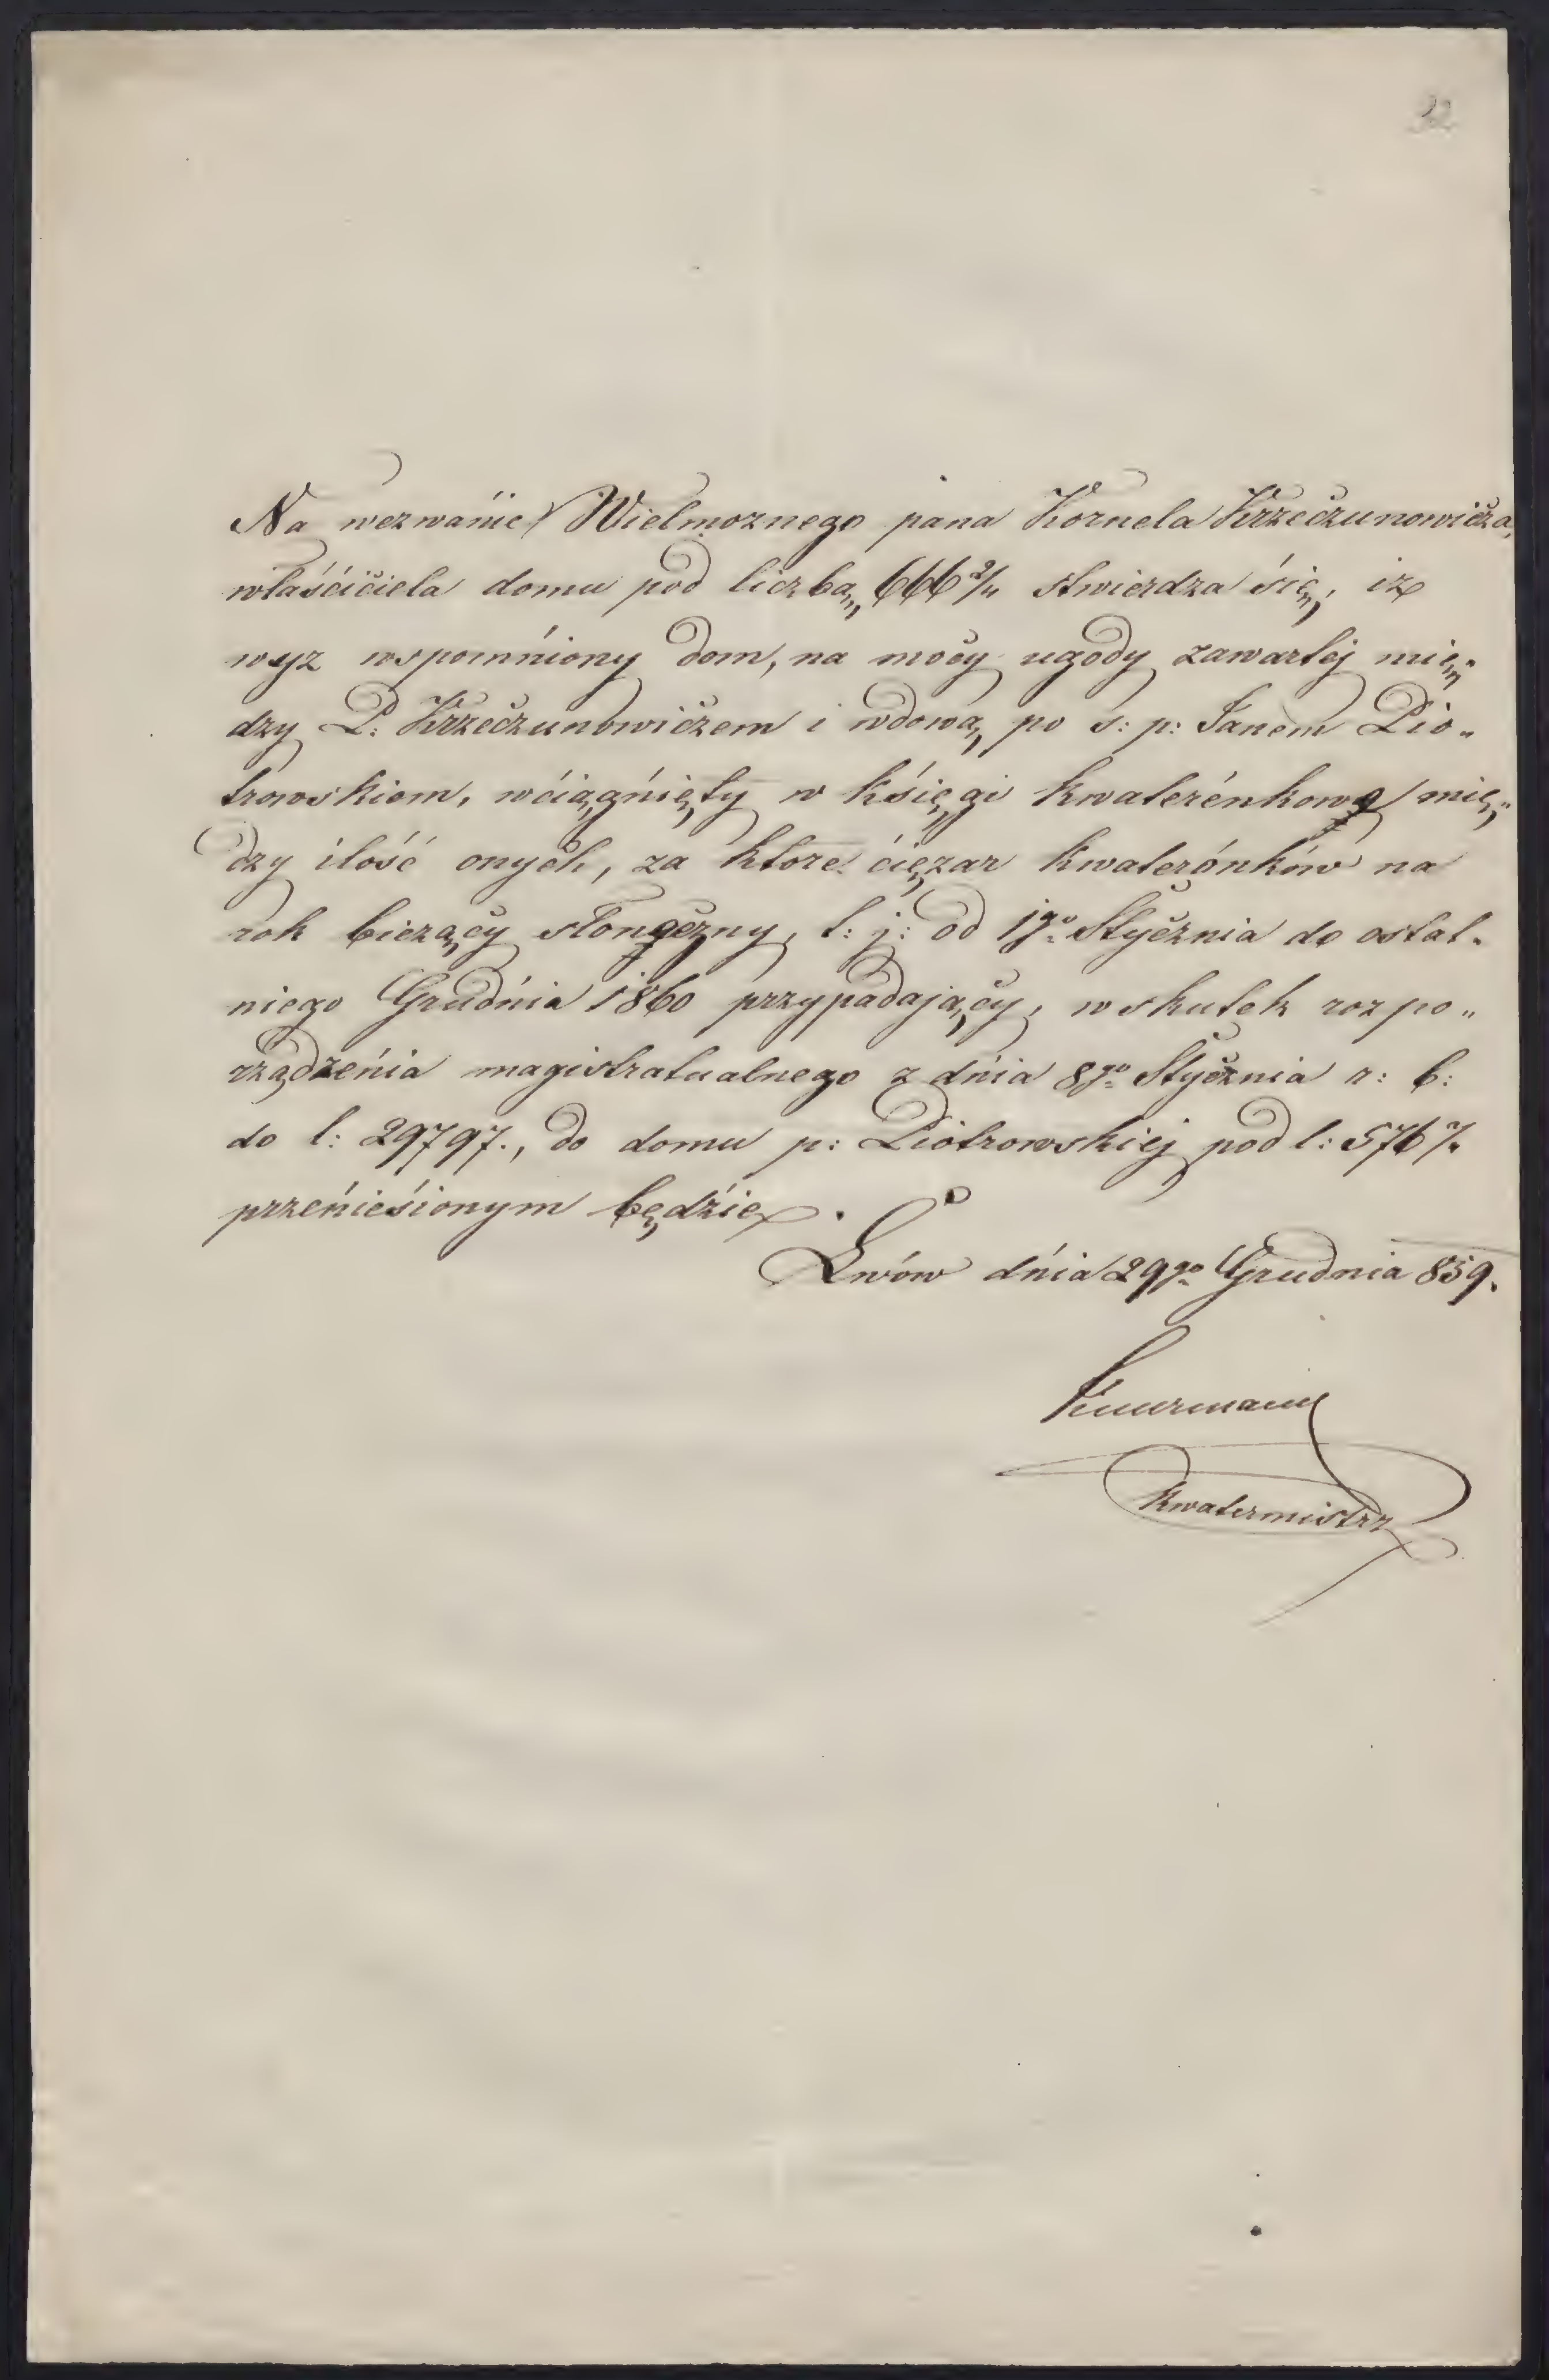 32
Na wezwańie Wielmoznego pana Kornela Krzeczunowicza,
właśćićiela domu pod liczbą 666 2/4 stwierdza śię, iz
wyz wspomńiony dom, na mocy ugody zawartej mię„
dzy P: Krzeczunowiczem i wdową po ś: p: Janem Pio„
trowskiem, wćiągńięty w kśięgi kwaterénkowę mię„
dzy ilość onych, za ktore ćięzar kwaterónków na
rok biezący słonęczny, t: j: od 1go Stycznia do ostat„
niego Grudńia 1860 przypadający, wskutek rozpo„
rządzeńia magistratualnego z dńia 8go Stycznia r: b:
do l: 29797., do domu p: Piotrowskiej pod l: 576
przeńieśionym będźie.
Lwów dńia 29go Grudnia 859.
Kwatermistrz